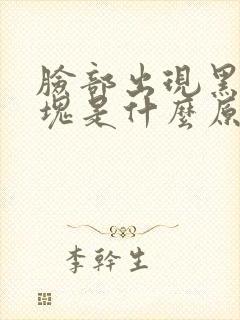 臉部出現黑
塊是什麼原
李幹生